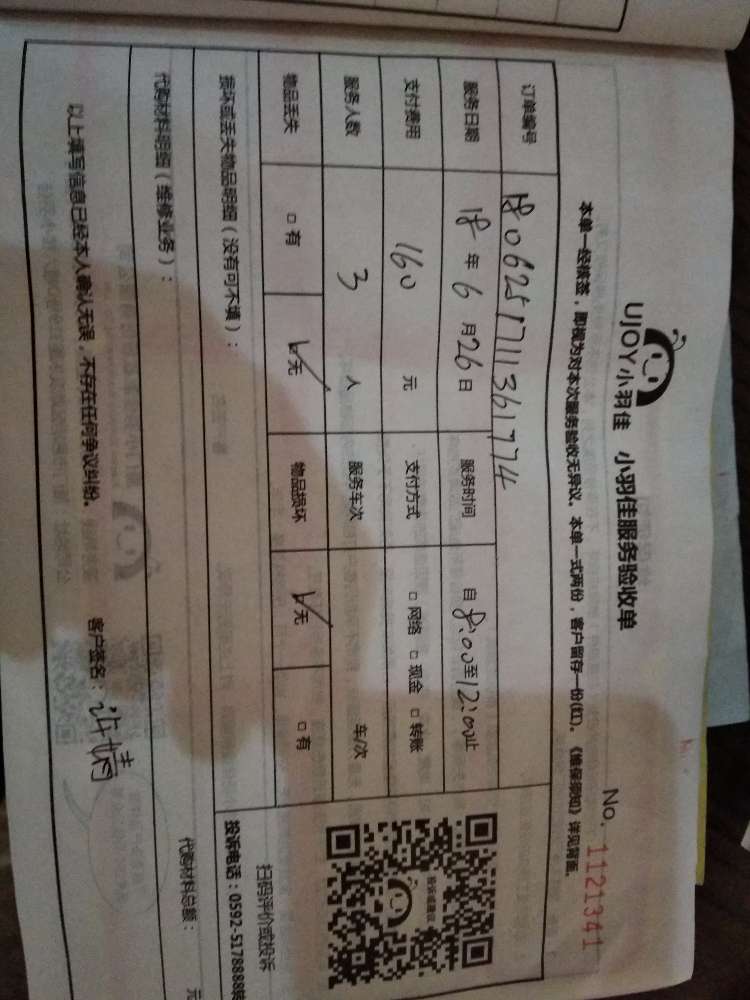 UJOY小羽佳 小羽佳服务验收单
No. 1121341
本单一经核签，即视为对本次服务验收无异议。本单一式两份，客户留存一份(红)。《维保须知》详见背面。
订单编号 1806251711361774
服务日期 18年6月26日 服务时间 自8:00至12:00止
支付费用 160元 支付方式 □网络 □现金 □转账
服务人数 3人 服务车次 车/次
物品丢失 □有 ☑无 物品损坏 ☑无 □有
投诉或建议
扫码评价或投诉
投诉电话：0592-5178888转
损坏或丢失物品明细（没有可不填）：
代购材料明细（维修业务）： 代购材料总额： 元
以上填写信息已经本人确认无误，不存在任何争议纠纷。 客户签名：许婧